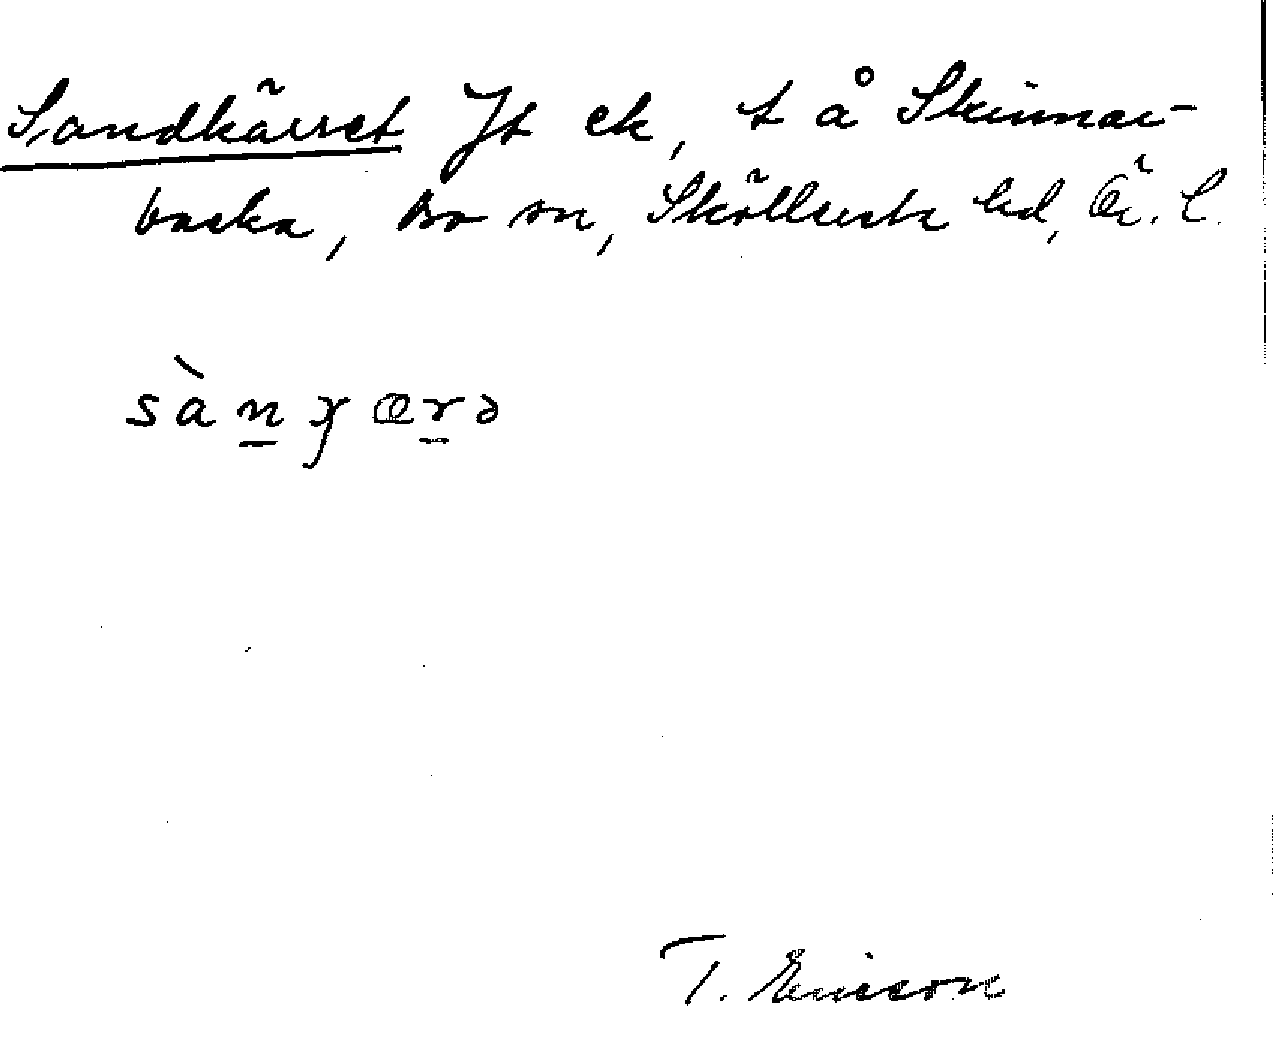 Sandkärret Jt ek, t å Skinnar-
backa, Bo sn, Sköllersta hd, Ö.L.
sànɣærə
T. Ericson